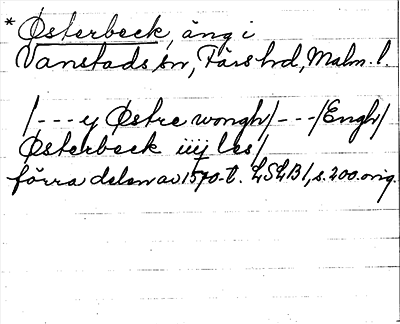 * Østerbeck, äng i
Vanstads sn, Färs hd, Malm. l.
/--- y Østre wongh/---/Engh/
Østerbeck iiij les/
förra delen av 1570-t. LSLB1, s. 200. orig.